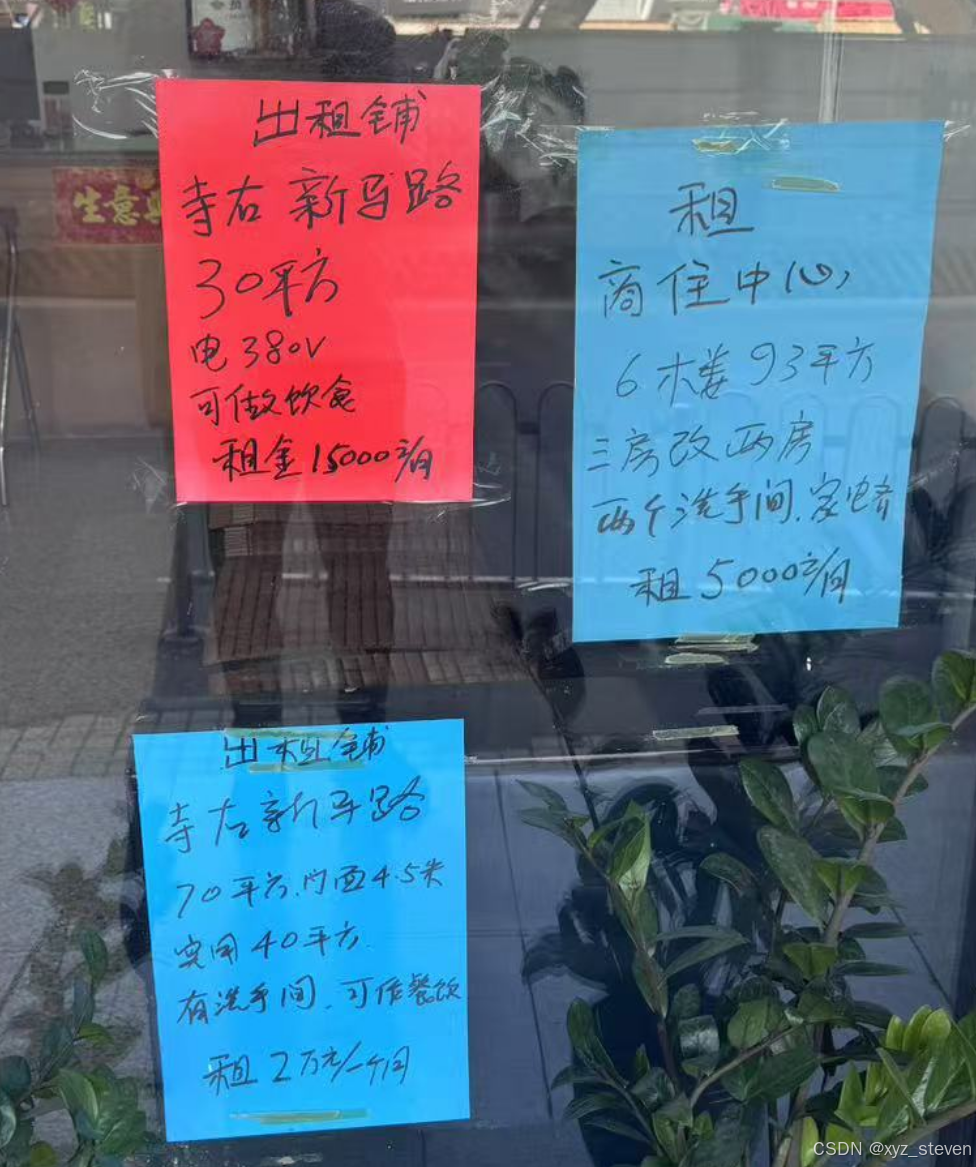 生意
出租铺
寺右新马路
30平方
电380V
可做饮食
租金15000元/月
租
商住中心
6楼93平方
三房改两房
两个洗手间.家电齐
租5000元/月
出租铺
寺右新马路
70平方.门面4.5米
实用40平方.
有洗手间.可作餐饮
租2万元/一个月
CSDN @xyz_steven